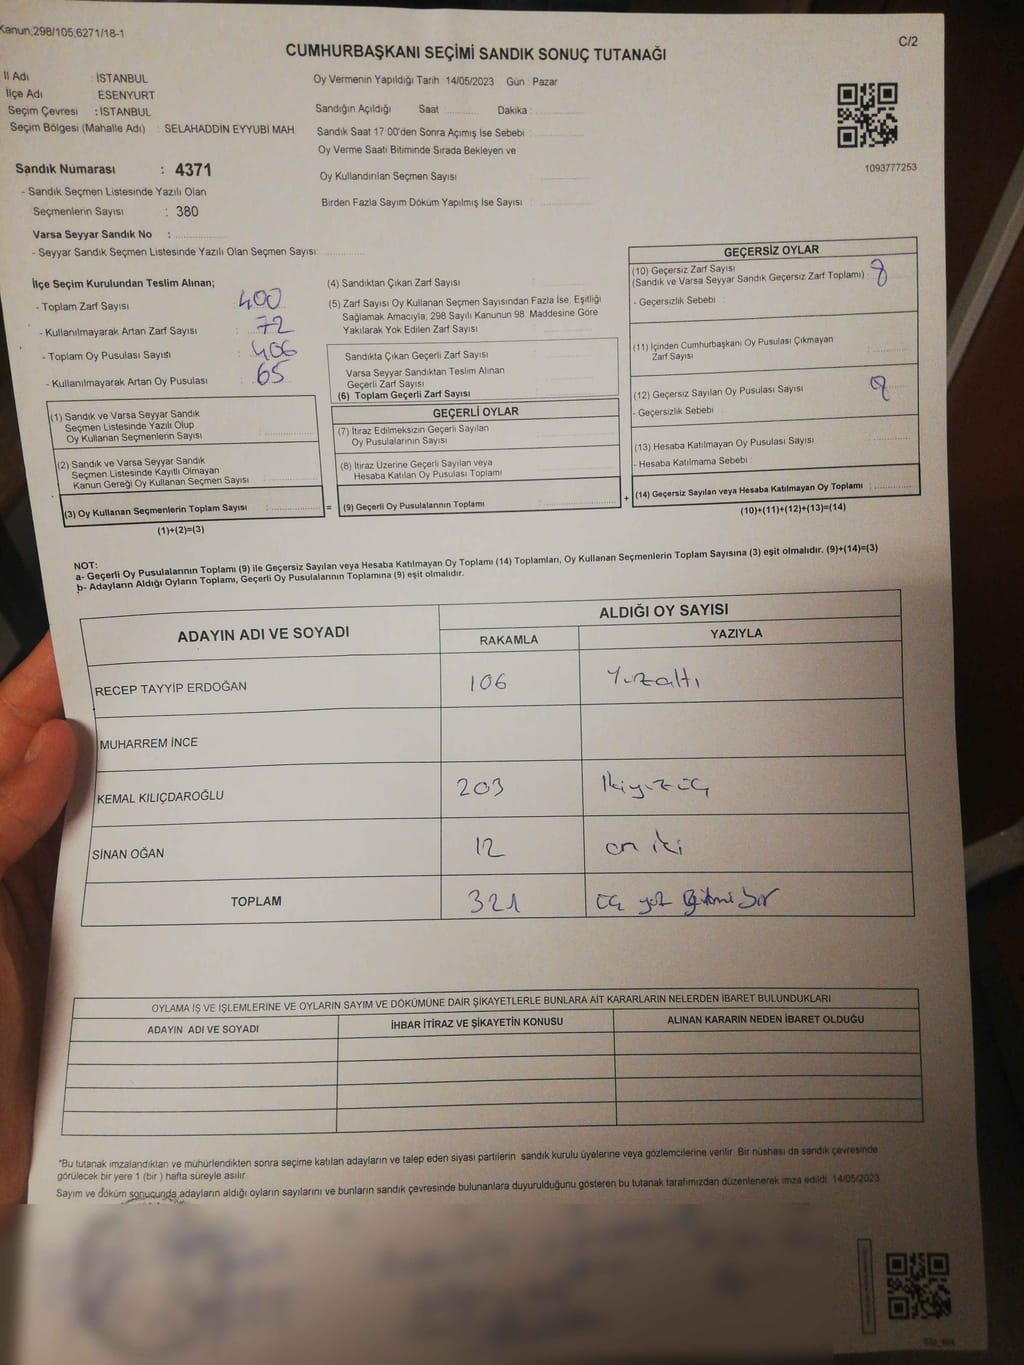 Kanun,298/105,6271/18-1
C/2
CUMHURBAŞKANI SEÇİMİ SANDIK SONUÇ TUTANAĞI
İl Adı : İSTANBUL
İlçe Adı : ESENYURT
Seçim Çevresi : İSTANBUL
Seçim Bölgesi (Mahalle Adı) : SELAHADDİN EYYUBİ MAH
Sandık Numarası : 4371
- Sandık Seçmen Listesinde Yazılı Olan
Seçmenlerin Sayısı : 380
Varsa Seyyar Sandık No :
- Seyyar Sandık Seçmen Listesinde Yazılı Olan Seçmen Sayısı:
Oy Vermenin Yapıldığı Tarih 14/05/2023 Gün : Pazar
Sandığın Açıldığı Saat Dakika :
Sandık Saat 17:00'den Sonra Açımış İse Sebebi :
Oy Verme Saati Bitiminde Sırada Bekleyen ve
Oy Kullandırılan Seçmen Sayısı
Birden Fazla Sayım Döküm Yapılmış İse Sayısı :
1093777253
İlçe Seçim Kurulundan Teslim Alınan;
- Toplam Zarf Sayısı : 400
- Kullanılmayarak Artan Zarf Sayısı : 72
- Toplam Oy Pusulası Sayısı : 406
- Kullanılmayarak Artan Oy Pusulası : 65
(1) Sandık ve Varsa Seyyar Sandık
Seçmen Listesinde Yazılı Olup
Oy Kullanan Seçmenlerin Sayısı :
(2) Sandık ve Varsa Seyyar Sandık
Seçmen Listesinde Kayıtlı Olmayan
Kanun Gereği Oy Kullanan Seçmen Sayısı :
(3) Oy Kullanan Seçmenlerin Toplam Sayısı : =
(1)+(2)=(3)
(4) Sandıktan Çıkan Zarf Sayısı
(5) Zarf Sayısı Oy Kullanan Seçmen Sayısından Fazla İse, Eşitliği
Sağlamak Amacıyla, 298 Sayılı Kanunun 98. Maddesine Göre
Yakılarak Yok Edilen Zarf Sayısı
Sandıkta Çıkan Geçerli Zarf Sayısı
Varsa Seyyar Sandıktan Teslim Alınan
Geçerli Zarf Sayısı
(6) Toplam Geçerli Zarf Sayısı
GEÇERLİ OYLAR
(7) İtiraz Edilmeksizin Geçerli Sayılan
Oy Pusulalarının Sayısı
(8) İtiraz Üzerine Geçerli Sayılan veya
Hesaba Katılan Oy Pusulası Toplamı
(9) Geçerli Oy Pusulalarının Toplamı +
GEÇERSİZ OYLAR
(10) Geçersiz Zarf Sayısı
(Sandık ve Varsa Seyyar Sandık Geçersiz Zarf Toplamı) : 8
- Geçersizlik Sebebi :
(11) İçinden Cumhurbaşkanı Oy Pusulası Çıkmayan
Zarf Sayısı
(12) Geçersiz Sayılan Oy Pusulası Sayısı
- Geçersizlik Sebebi
(13) Hesaba Katılmayan Oy Pusulası Sayısı
- Hesaba Katılmama Sebebi :
(14) Geçersiz Sayılan veya Hesaba Katılmayan Oy Toplamı :
(10)+(11)+(12)+(13)=(14)
NOT:
a- Geçerli Oy Pusulalarının Toplamı (9) ile Geçersiz Sayılan veya Hesaba Katılmayan Oy Toplamı (14) Toplamları, Oy Kullanan Seçmenlerin Toplam Sayısına (3) eşit olmalıdır. (9)+(14)=(3)
b- Adayların Aldığı Oyların Toplamı, Geçerli Oy Pusulalarının Toplamına (9) eşit olmalıdır.
ADAYIN ADI VE SOYADI ALDIĞI OY SAYISI
RAKAMLA YAZIYLA
RECEP TAYYİP ERDOĞAN 106 Yüzaltı
MUHARREM İNCE
KEMAL KILIÇDAROĞLU 203 İkiyüzüç
SİNAN OĞAN 12 on iki
TOPLAM 321 üç yüz bir
OYLAMA İŞ VE İŞLEMLERİNE VE OYLARIN SAYIM VE DÖKÜMÜNE DAİR ŞİKAYETLERLE BUNLARA AİT KARARLARIN NELERDEN İBARET BULUNDUKLARI
ADAYIN ADI VE SOYADI İHBAR İTİRAZ VE ŞİKAYETİN KONUSU ALINAN KARARIN NEDEN İBARET OLDUĞU
*Bu tutanak imzalandıktan ve mühürlendikten sonra seçime katılan adayların ve talep eden siyasi partilerin sandık kurulu üyelerine veya gözlemcilerine verilir. Bir nüshası da sandık çevresinde
görülecek bir yere 1 (bir ) hafta süreyle asılır.
Sayım ve döküm sonucunda adayların aldığı oyların sayılarını ve bunların sandık çevresinde bulunanlara duyurulduğunu gösteren bu tutanak tarafımızdan düzenlenerek imza edildi. 14/05/2023